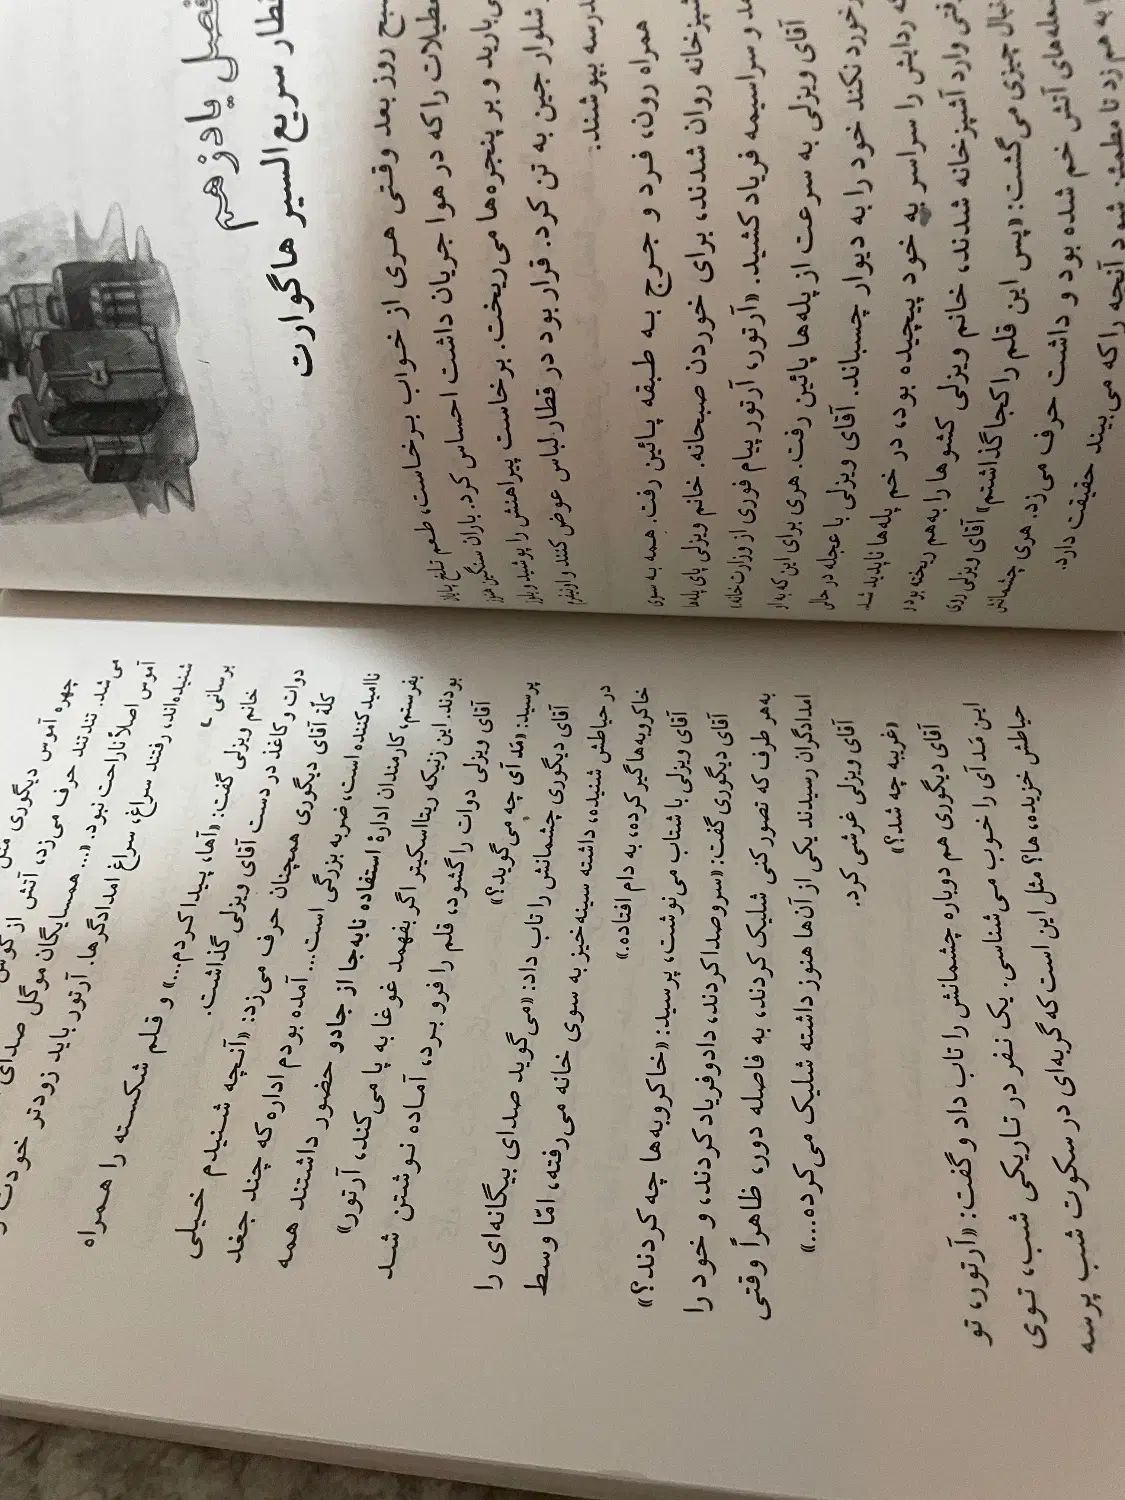 فصل یازدهم
قطار سریع‌السیر هاگوارت
روز بعد وقتی هری از خواب برخاست، طعم تلخ پایان
تعطیلات را که در هوا جریان داشت احساس کرد. باران سنگین هنوز
می‌بارید و بر پنجره‌ها می‌ریخت. برخاست پیراهنش را پوشید و بلوز
و شلوار جین به تن کرد. قرار بود در قطار لباس عوض کنند و اونیفرم
مدرسه بپوشند.
همراه رون، فرد و جرج به طبقه پائین رفت. همه به سوی
آشپزخانه روان شدند، برای خوردن صبحانه. خانم ویزلی پای پله‌ها
و سراسیمه فریاد کشید. «آرتور، آرتور پیام فوری از وزارت‌خانه»
آقای ویزلی به سرعت از پله‌ها پائین رفت. هری برای این که به او
برخورد نکند خود را به دیوار چسباند. آقای ویزلی با عجله در حالی
که ردایش را سراسر به خود پیچیده بود، در خم پله‌ها ناپدید شد.
وقتی وارد آشپزخانه شدند، خانم ویزلی کشوها را به هم ریخته بود و
دنبال چیزی می‌گشت: «پس این قلم را کجا گذاشتم» آقای ویزلی روی
شعله‌های آتش خم شده بود و داشت حرف می‌زد. هری چشمانش
را به هم زد تا مطمئن شود آنچه را که می‌بیند حقیقت دارد.
چهره آموس دیگوری
می‌شد. تندتند حرف می‌زد، آتش از گوش
آموس اصلاً ناراحت نبود. «... همسایگان موگل صدای
شنیده‌اند، رفتند سراغ، سراغ امدادگرها. آرتور باید زودتر خودت
برسانی»
خانم ویزلی گفت: «آها، پیدا کردم...» و قلم شکسته را همراه
دوات و کاغذ در دست آقای ویزلی گذاشت.
کلّهٔ آقای دیگوری همچنان حرف می‌زد: «آنچه شنیدم خیلی
ناامیدکننده است، ضربه بزرگی است... آمده بودم اداره که چند جغد
بفرستم، کارمندان ادارهٔ استفاده نابه‌جا از جادو حضور داشتند همه
بودند. این زنیکه ریتااسکیتر اگر بفهمد غوغا به پا می‌کند، آرتور»
آقای ویزلی دوات را گشود، قلم را فرو برد، آماده نوشتن شد
پرسید: «مَد آی چه می‌گوید؟»
آقای دیگوری چشمانش را تاب داد: «می‌گوید صدای بیگانه‌ای را
در حیاطش شنیده، داشته سینه‌خیز به سوی خانه می‌رفته، امّا وسط
خاکروبه‌ها گیر کرده، به دام افتاده.»
آقای ویزلی با شتاب می‌نوشت، پرسید: «خاکروبه‌ها چه کردند؟»
آقای دیگوری گفت: «سروصدا کردند، دادوفریاد کردند، و خود را
به‌هر طرف که تصور کنی شلیک کردند، به فاصله دور، ظاهراً وقتی
امدادگران رسیدند یکی از آن‌ها هنوز داشته شلیک می‌کرده...»
آقای ویزلی غرشی کرد.
«غریبه چه شد؟»
آقای دیگوری هم دوباره چشمانش را تاب داد و گفت: «آرتور، تو
این مَدآی را خوب می‌شناسی. یک نفر در تاریکی شب، توی
حیاطش خزیده، ها؟ مثل این است که گربه‌ای در سکوت شب پرسه